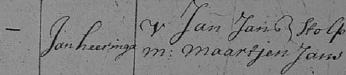 — Jan heeringa v Jan Jans } Stolp
m: maartjen Jans